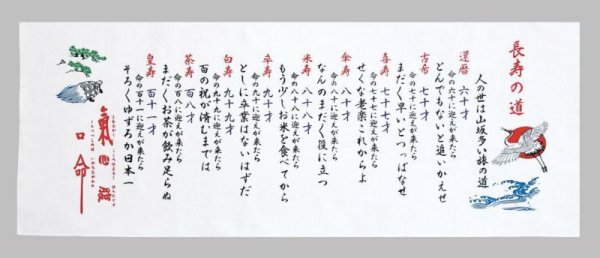 長寿の道
人の世は山坂多い旅の道
還暦 六十才
命の六十に迎えが来たら
とんでもないと追いかえせ
古希 七十才
命の七十に迎えが来たら
まだまだ早いとつっぱなせ
喜寿 七十七才
命の七十七に迎えが来たら
せくな老楽これからよ
傘寿 八十才
命の八十に迎えが来たら
なんのまだまだ役に立つ
米寿 八十八才
命の八十八に迎えが来たら
もう少しお米を食べてから
卒寿 九十才
命の九十に迎えが来たら
としに卒業はないはずだ
白寿 九十九才
命の九十九に迎えが来たら
百の祝が済むまでは
茶寿 百八才
命の百八に迎えが来たら
まだまだお茶が飲み足らぬ
皇寿 百十一才
命の百十一に迎えが来たら
そろそろゆずろか日本一
氣
心
口 命